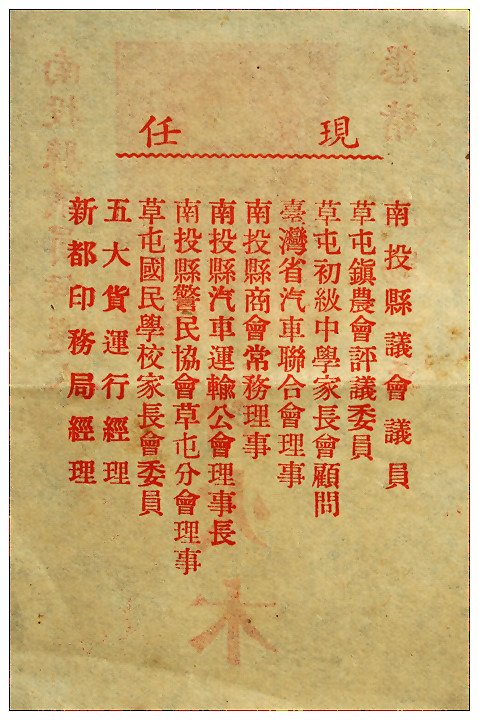 現任
南投縣議會議員
草屯鎭農會評議委員
草屯初級中學家長會顧問
臺灣省汽車聯合會理事
南投縣商會常務理事
南投縣汽車運輸公會理事長
南投縣警民協會草屯分會理事
草屯國民學校家長會委員
五大貨運行經理
新都印務局經理